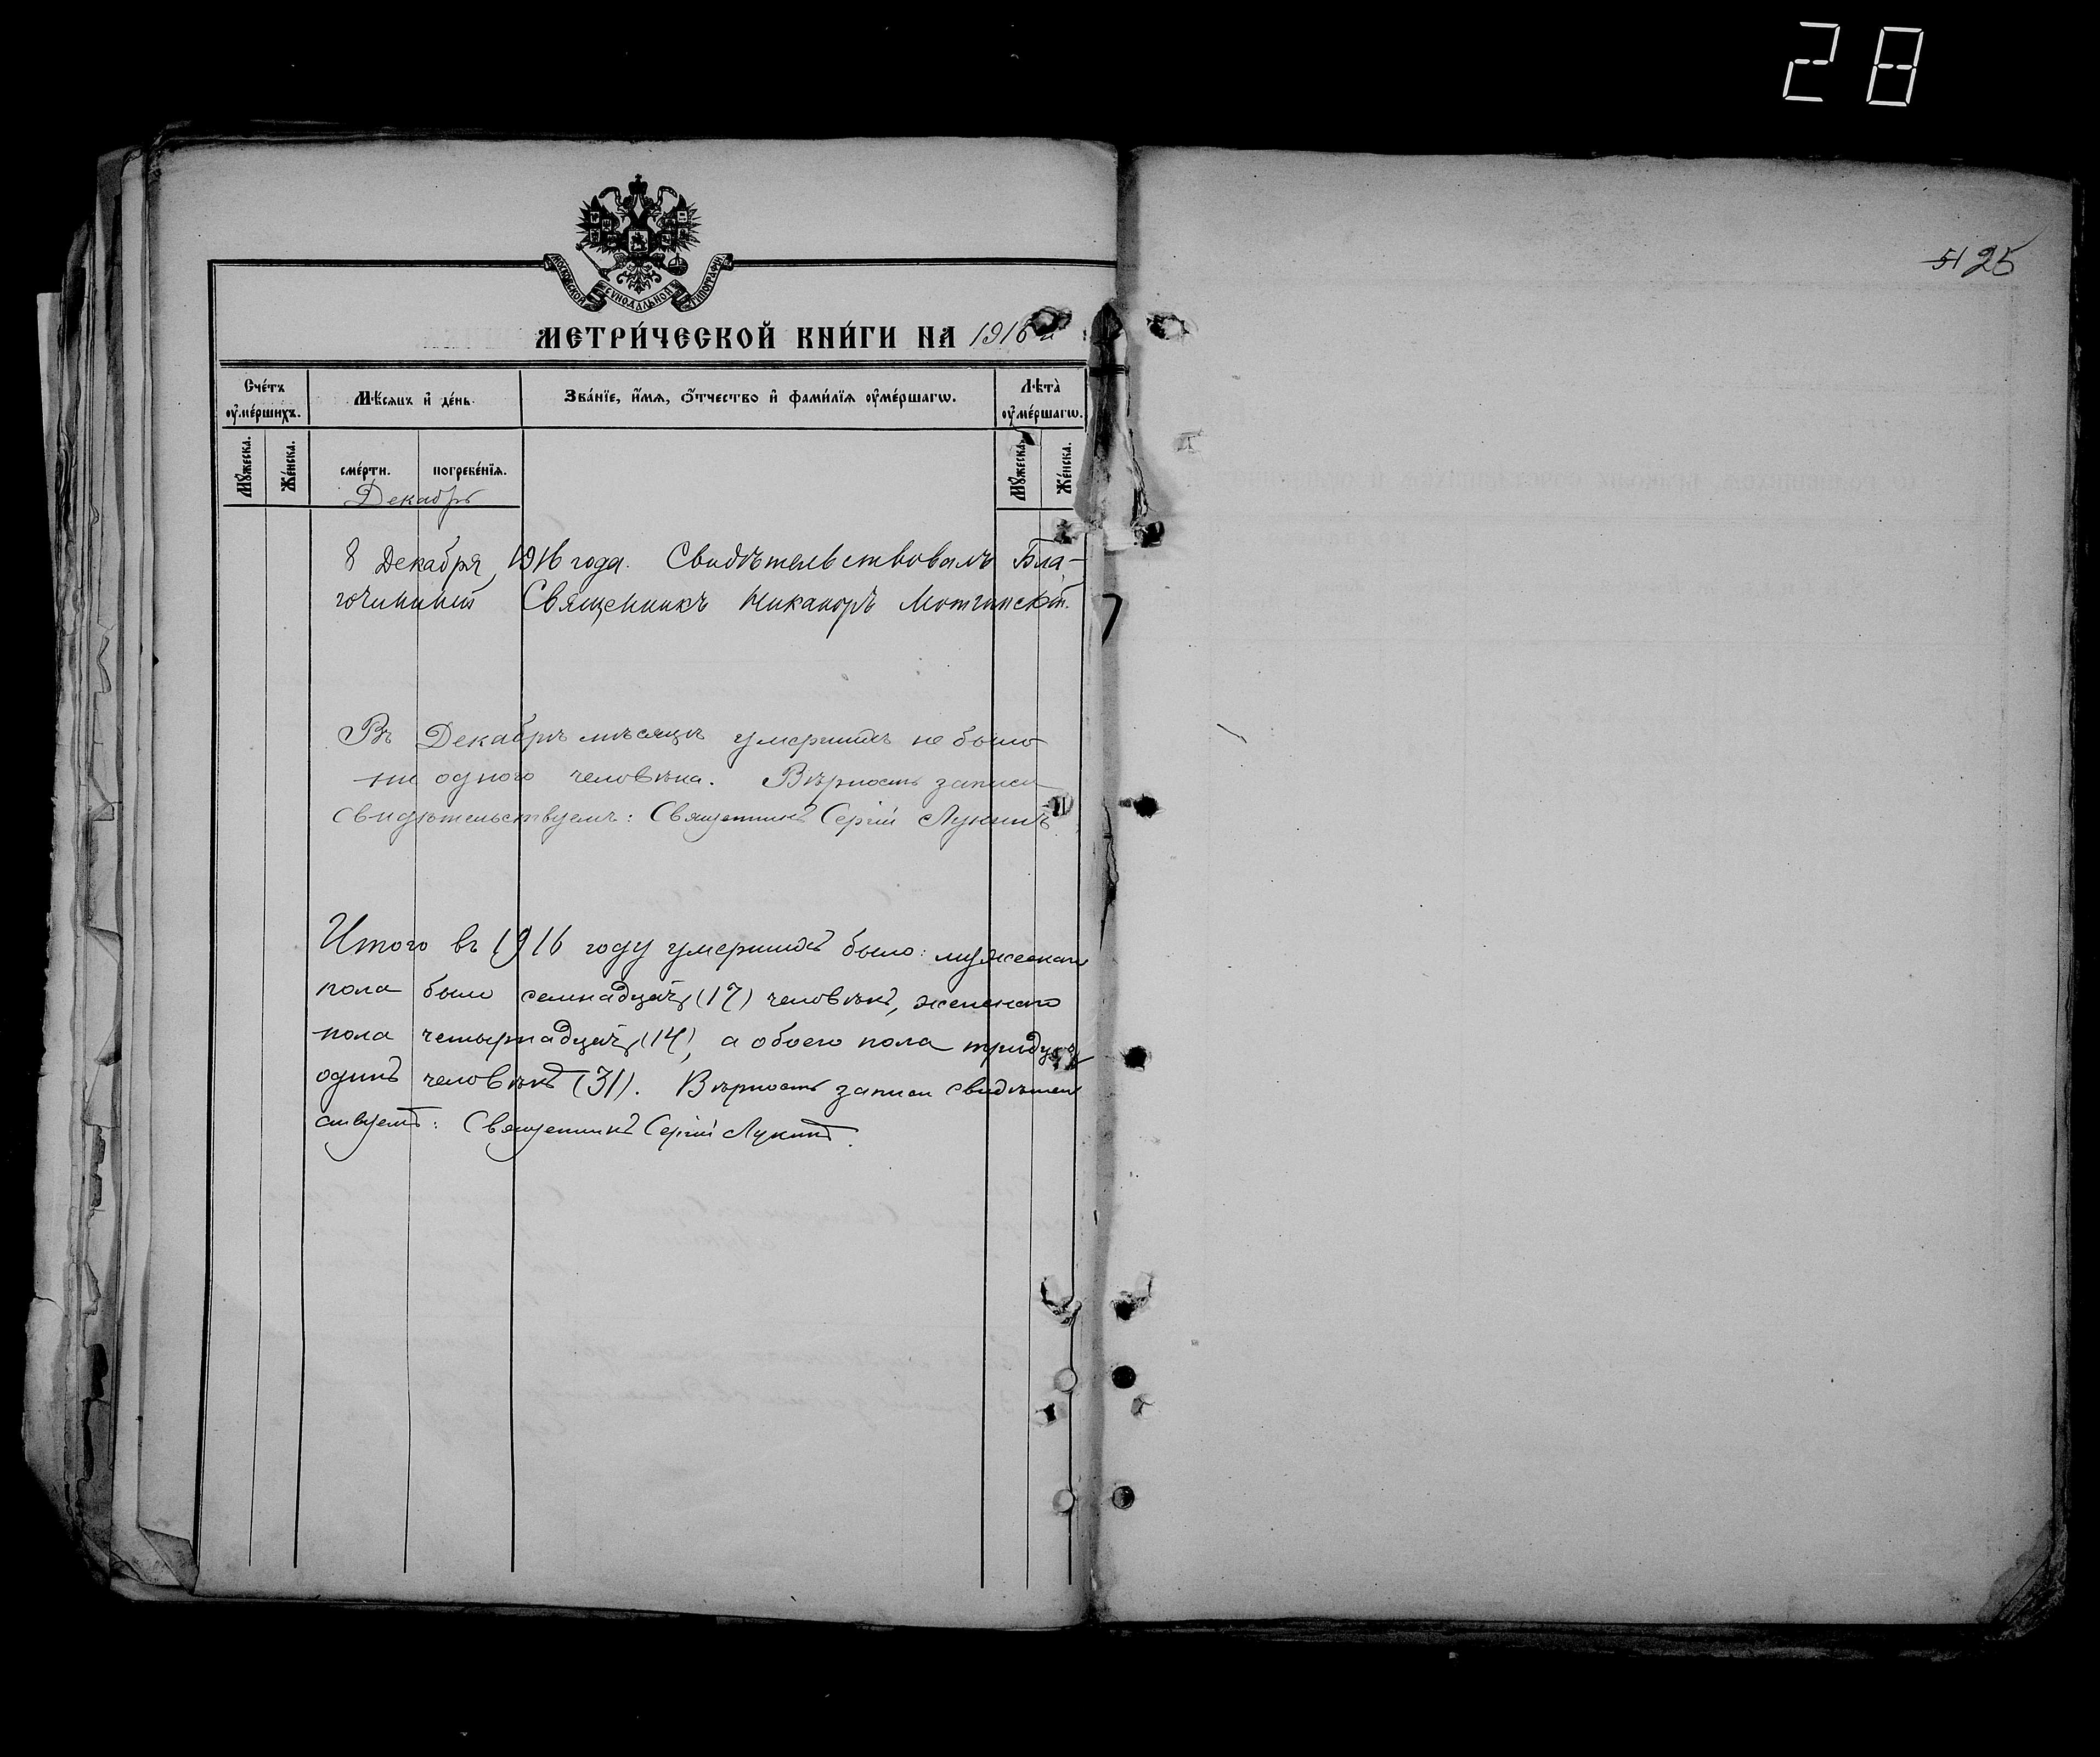 28
51 25
МОСКОВСКОЙ СѴНОДАЛЬНОЙ ТИПОГРАФІИ
МЕТРИ́ЧЕСКОЙ КНИ́ГИ НА 1916 й
Сче́тъ оу҆ме́ршихъ.
Мѣ́сяцъ и҆ де́нь.
Зва́нїе, и҆́мѧ, ѻ҆́тчество и҆ фами́лїѧ оу҆ме́ршагѡ.
Лѣ́та оу҆ме́ршагѡ.
Мꙋ́жеска.
Же́нска.
сме́рти.
погребе́нїѧ.
Мꙋ́жеска.
Же́нска.
Декабрь
8 Декабря 1916 года. Свидѣтельствовалъ Бла-
гочинный Священникъ Никаноръ
Въ Декабрѣ мѣсяцѣ умершихъ не было
ни одного человѣка. Вѣрность записи
свидѣтельствуемъ: Священникъ Сергій Лукинъ
Итого въ 1916 году умершихъ было: мужескаго
пола было семнадцать (17) человѣкъ, женскаго
пола четырнадцать (14), а обоего пола тридцать
одинъ человѣкъ (31). Вѣрность записи свидѣтель
ствуемъ: Священникъ Сергій Лукинъ.